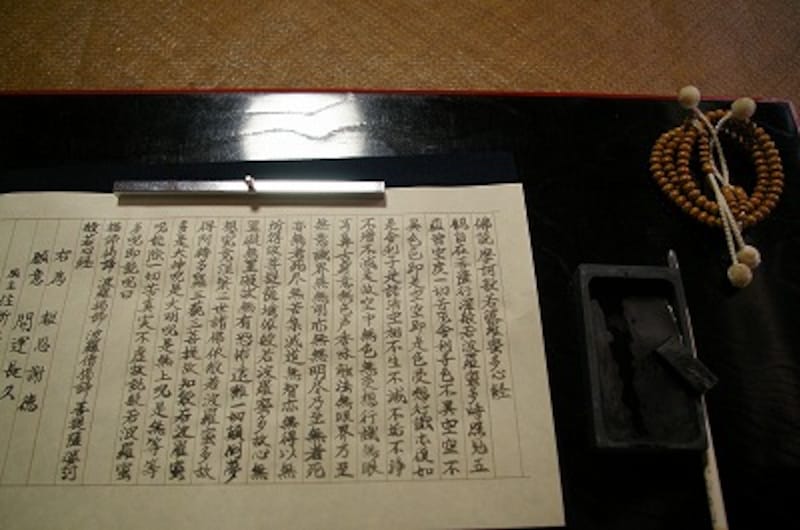 佛説摩訶般若波羅蜜多心経
観自在菩薩行深般若波羅蜜多時照見五
蘊皆空度一切苦厄舎利子色不異空空不
異色色即是空空即是色受想行識亦復如
是舎利子是諸法空相不生不滅不垢不浄
不増不減是故空中無色無受想行識無眼
耳鼻舌身意無色声香味触法無眼界乃至
無意識界無無明亦無無明尽乃至無老死
亦無老死尽無苦集滅道無智亦無得以無
所得故菩提薩埵依般若波羅蜜多故心無
罣礙無罣礙故無有恐怖遠離一切顛倒夢
想究竟涅槃三世諸佛依般若波羅蜜多故
得阿耨多羅三藐三菩提故知般若波羅蜜
多是大神呪是大明呪是無上呪是無等等
呪能除一切苦真実不虚故説般若波羅蜜
多呪即説呪曰
羯諦羯諦 波羅羯諦 波羅僧羯諦 菩提薩婆訶
般若心経
右為 報恩謝徳
願意 開運長久